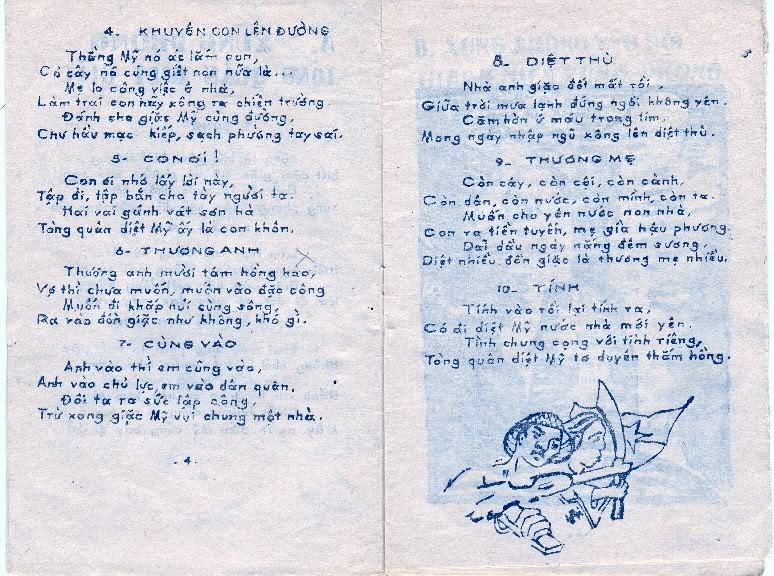 4- KHUYÊN CON LÊN ĐƯỜNG
Thằng Mỹ nó ác lắm con,
Cỏ cây nó cũng giết non nữa là.
Mẹ lo công việc ở nhà,
Làm trai con hãy xông ra chiến trường.
Đánh cho giặc Mỹ cùng đường,
Chư hầu mạc kiếp, sạch phường tay sai.
5- CON ƠI !
Con ơi nhớ lấy lời này,
Tập đi, tập bắn cho tày người ta.
Hai vai gánh vát sơn hà
Tòng quân diệt Mỹ ấy là con khôn.
6- THƯƠNG ANH
Thương anh mười tám hồng hào,
Vợ thì chưa muốn, muốn vào đặc công
Muốn đi khắp núi cùng sông,
Ra vào đồn giặc như không, khó gì.
7- CÙNG VÀO
Anh vào thì em cũng vào,
Anh vào chủ lực, em vào dân quân.
Đôi ta ra sức lập công,
Trừ xong giặc Mỹ vui chung một nhà.
- 4 -
8- DIỆT THÙ
Nhà anh giặc đốt mất rồi,
Giữa trời mưa lạnh đứng ngồi không yên.
Căm hờn ứ máu trong tim,
Mong ngày nhập ngũ xông lên diệt thù.
9- THƯƠNG MẸ
Còn cây, còn cội, còn cành,
Còn dân, còn nước, còn mình, còn ta.
Muốn cho yên nước non nhà,
Con ra tiền tuyến, mẹ già hậu phương.
Dãi dầu ngày nắng đêm sương,
Diệt nhiều đồn giặc là thương mẹ nhiều.
10- TÍNH
Tính vào rồi lại tính ra,
Có đi diệt Mỹ nước nhà mới yên.
Tình chung cọng với tình riêng,
Tòng quân diệt Mỹ tơ duyên thắm hồng.